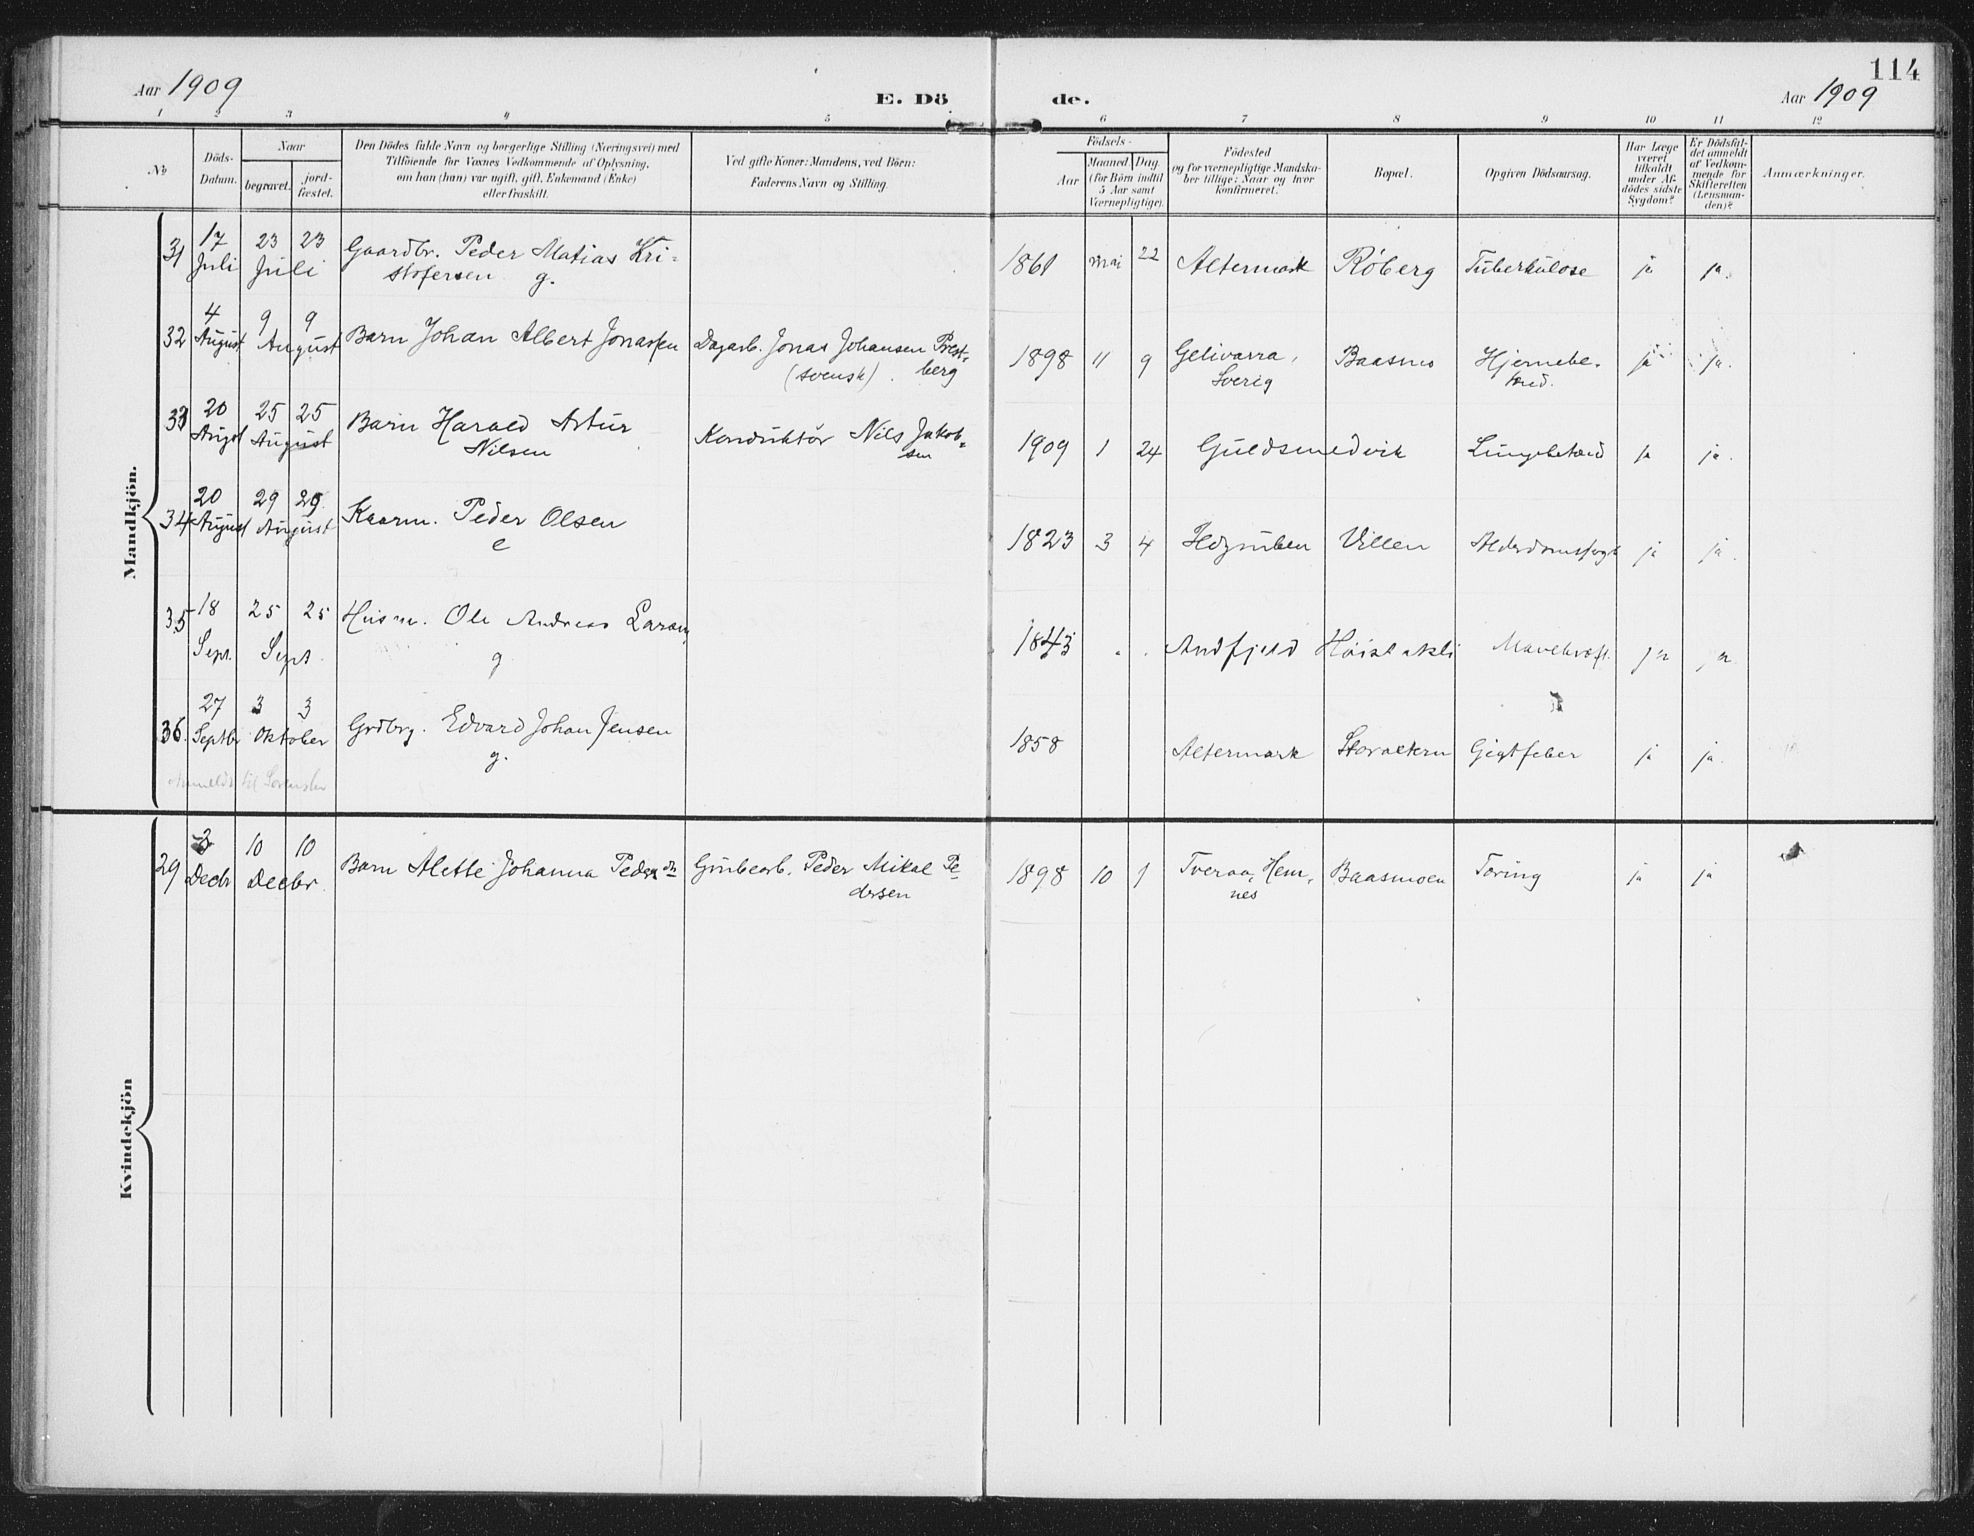 114
Aar 1909
E. Dö de.
Aar 1909
1 2 3 4 5 6 7 8 9 10 11 12
№
Döds-
Datum.
Naar
begravet.
jord-
fæstet.
Den Dödes fulde Navn og borgerlige Stilling (Næringsvei) med
Tilföiende for Voxnes Vedkommende af Oplysning,
om han (hun) var ugift, gift, Enkemand (Enke)
eller fraskilt.
Ved gifte Koner: Mandens, ved Börn:
Faderens Navn og Stilling.
Födsels-
Aar
Maaned. Dag.
(for Börn indtil
5 Aar samt
Værnepligtige).
Födested
og for værnepligtige Mandska-
ber tillige: Naar og hvor
konfirmeret.
Bopæl.
Opgiven Dödsaarsag.
Har Læge
været
tilkaldt
under Af-
dödes sidste
Sygdom?
Er Dödsfal-
det anmeldt
af Vedkom-
mende for
Skifteretten
(Lensman-
den)?
Anmærkninger.
Mandkjön.
31 17 Juli 23 23 Juli Gaardbr. Peder Matias Kri-
stofersen g.
1861 mai 22 Altermark Röberg Tuberkulose ja ja.
32 4 August 9 9 August Barn Johan Albert Jonassen Dagarb. Jonas Johansen Prest-
berg
(svensk).
1898 11 9 Gelivarra, Sverig Baasmo Hjernebe-
tænd. ja ja.
33 20 August 25 25 August Barn Harald Artur
Nilsen
Konduktör Nils Jakob-
sen
1909 1 24 Guldsmedvik Lungebetænd ja ja.
34 20 August 29 29. August Kaarm. Peder Olsen
e
1823 3 4 Villen ja ja.
35 18 Sept. 25 25 Sept. Husm. Ole Andreas Larsen
g
1843 . . Andfjeld Höistakli Mavekræft. ja ja
36. 27 Septbr 3 3 Oktober Grdbrg. Edvard Johan Jensen
g.
1858 Altermark Storaltern Gigtfeber ja ja.
Anmeldt til
Kvindekjön
29 3 Decbr 10 10 Decbr. Barn Alette Johanna Pedersen Grubearb. Peder Mikal Pe-
dersen
1898 10 1 Tveraa, Hem-
nes
Baasmoen Tæring ja ja